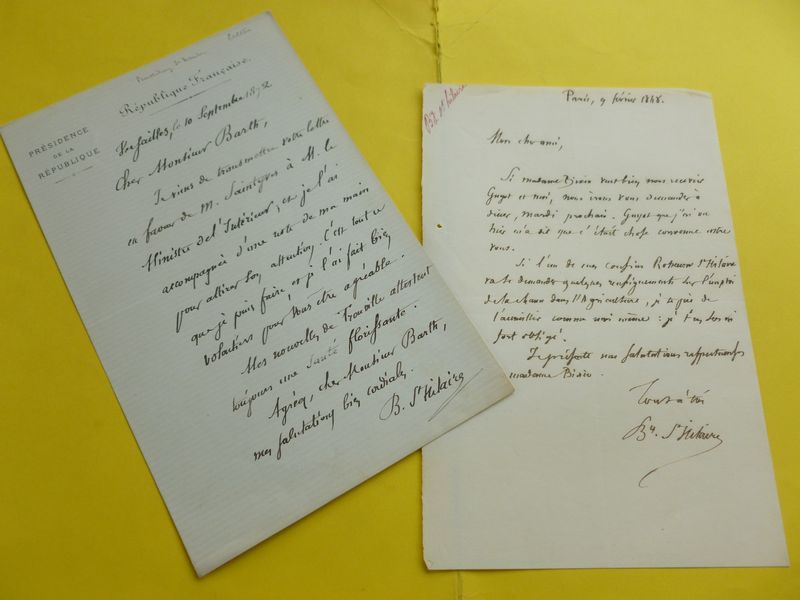 République Française.
PRÉSIDENCE
DE LA
RÉPUBLIQUE
Versailles, le 10 Septembre 1872
Cher Monsieur Barth,
Je viens de transmettre votre lettre
en faveur de M. Saintyves à M. le
Ministre de l'Intérieur, et je l'ai
accompagnée d'une note de ma main
pour attirer son attention. C'est tout ce
que je puis faire, et je l'ai fait bien
volontiers pour vous être agréable.
Mes nouvelles de Trouville attestent
toujours une santé florissante.
Agréez, cher Monsieur Barth,
mes salutations bien cordiales.
B. St Hilaire
Bg St hilaire
Paris, 9 février 1848.
Mon cher ami,
Si madame Bixio veut bien nous recevoir
Guyot et moi, nous irons vous demander à
diner, mardi prochain. Guyot que j'ai vu
hier m'a dit que c'était chose convenue entre
vous.
Si l'un de mes cousins St Hilaire
va te demander quelques renseignements sur l'emploi
de la chaux dans l'Agriculture, je te prie de
l'accueillir comme moi même : je t'en serai
fort obligé.
Je présente mes salutations respectueuses
à madame Bixio.
Tout à toi
By. St Hilaire